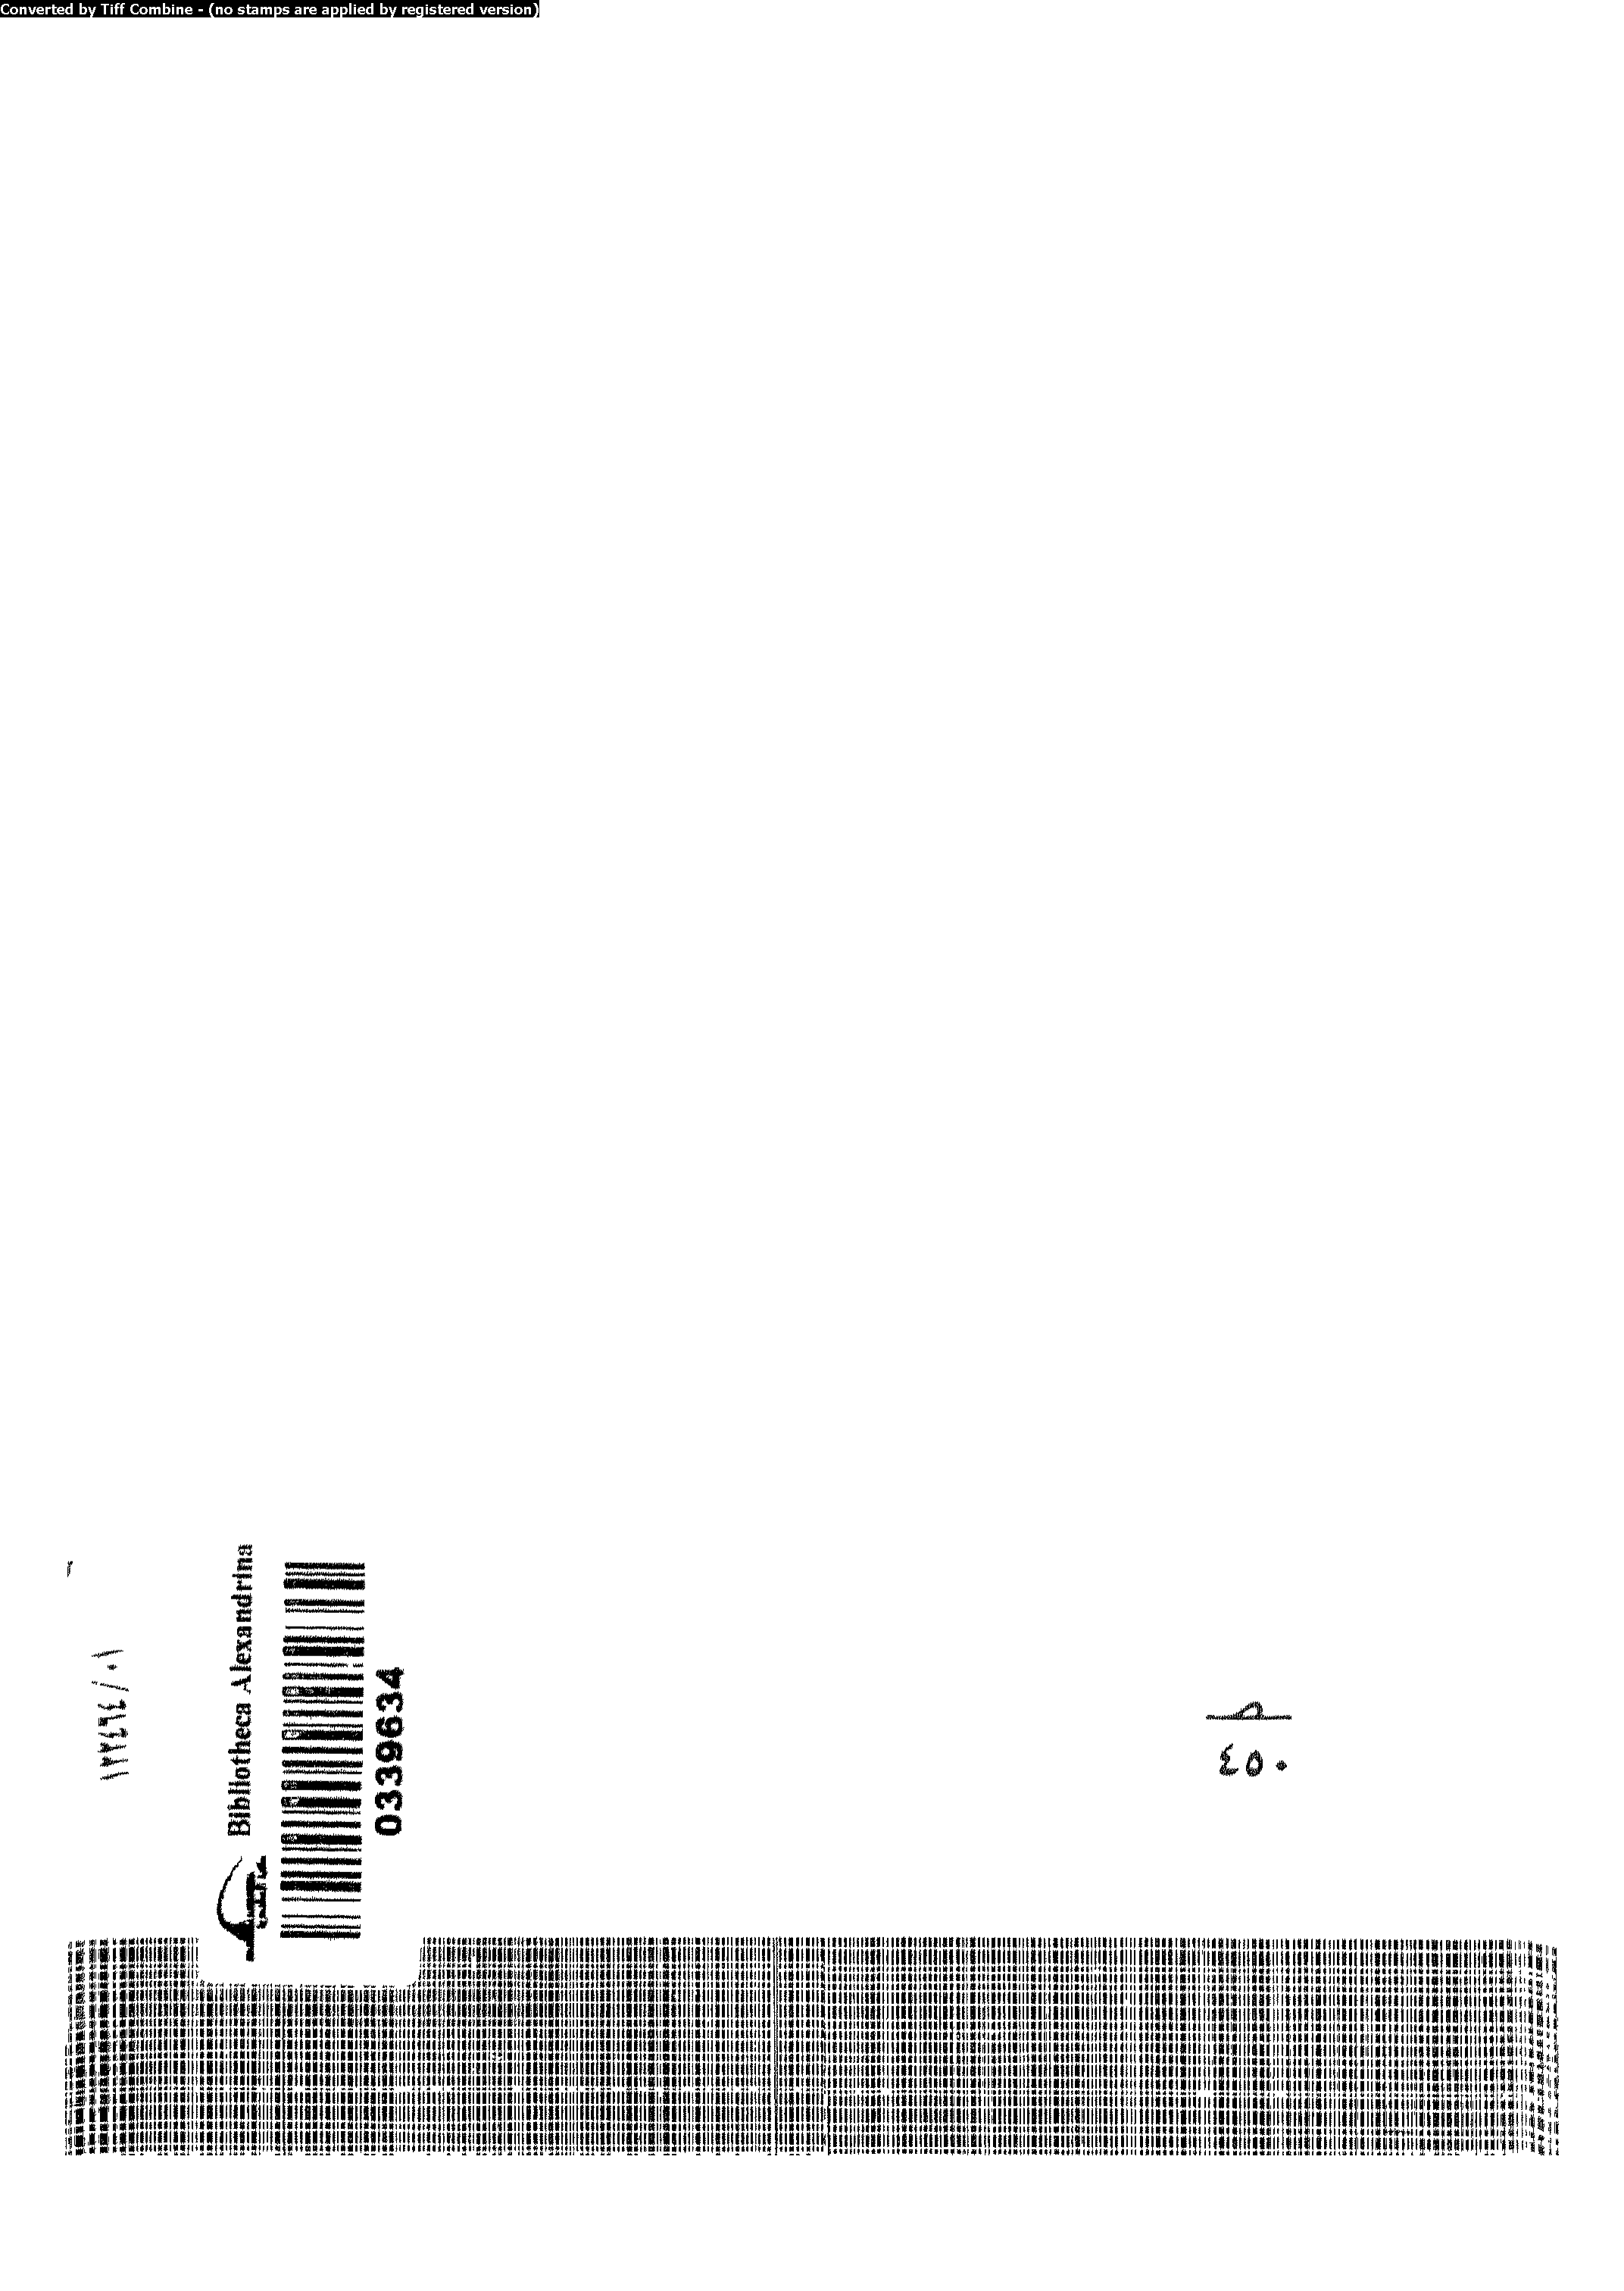 Converted by Tiff Combine - (no stamps are applied by registered version)
١٢٢٤٦٤/٠١
Bibliotheca Alexandrina
0339634
٤٥٠